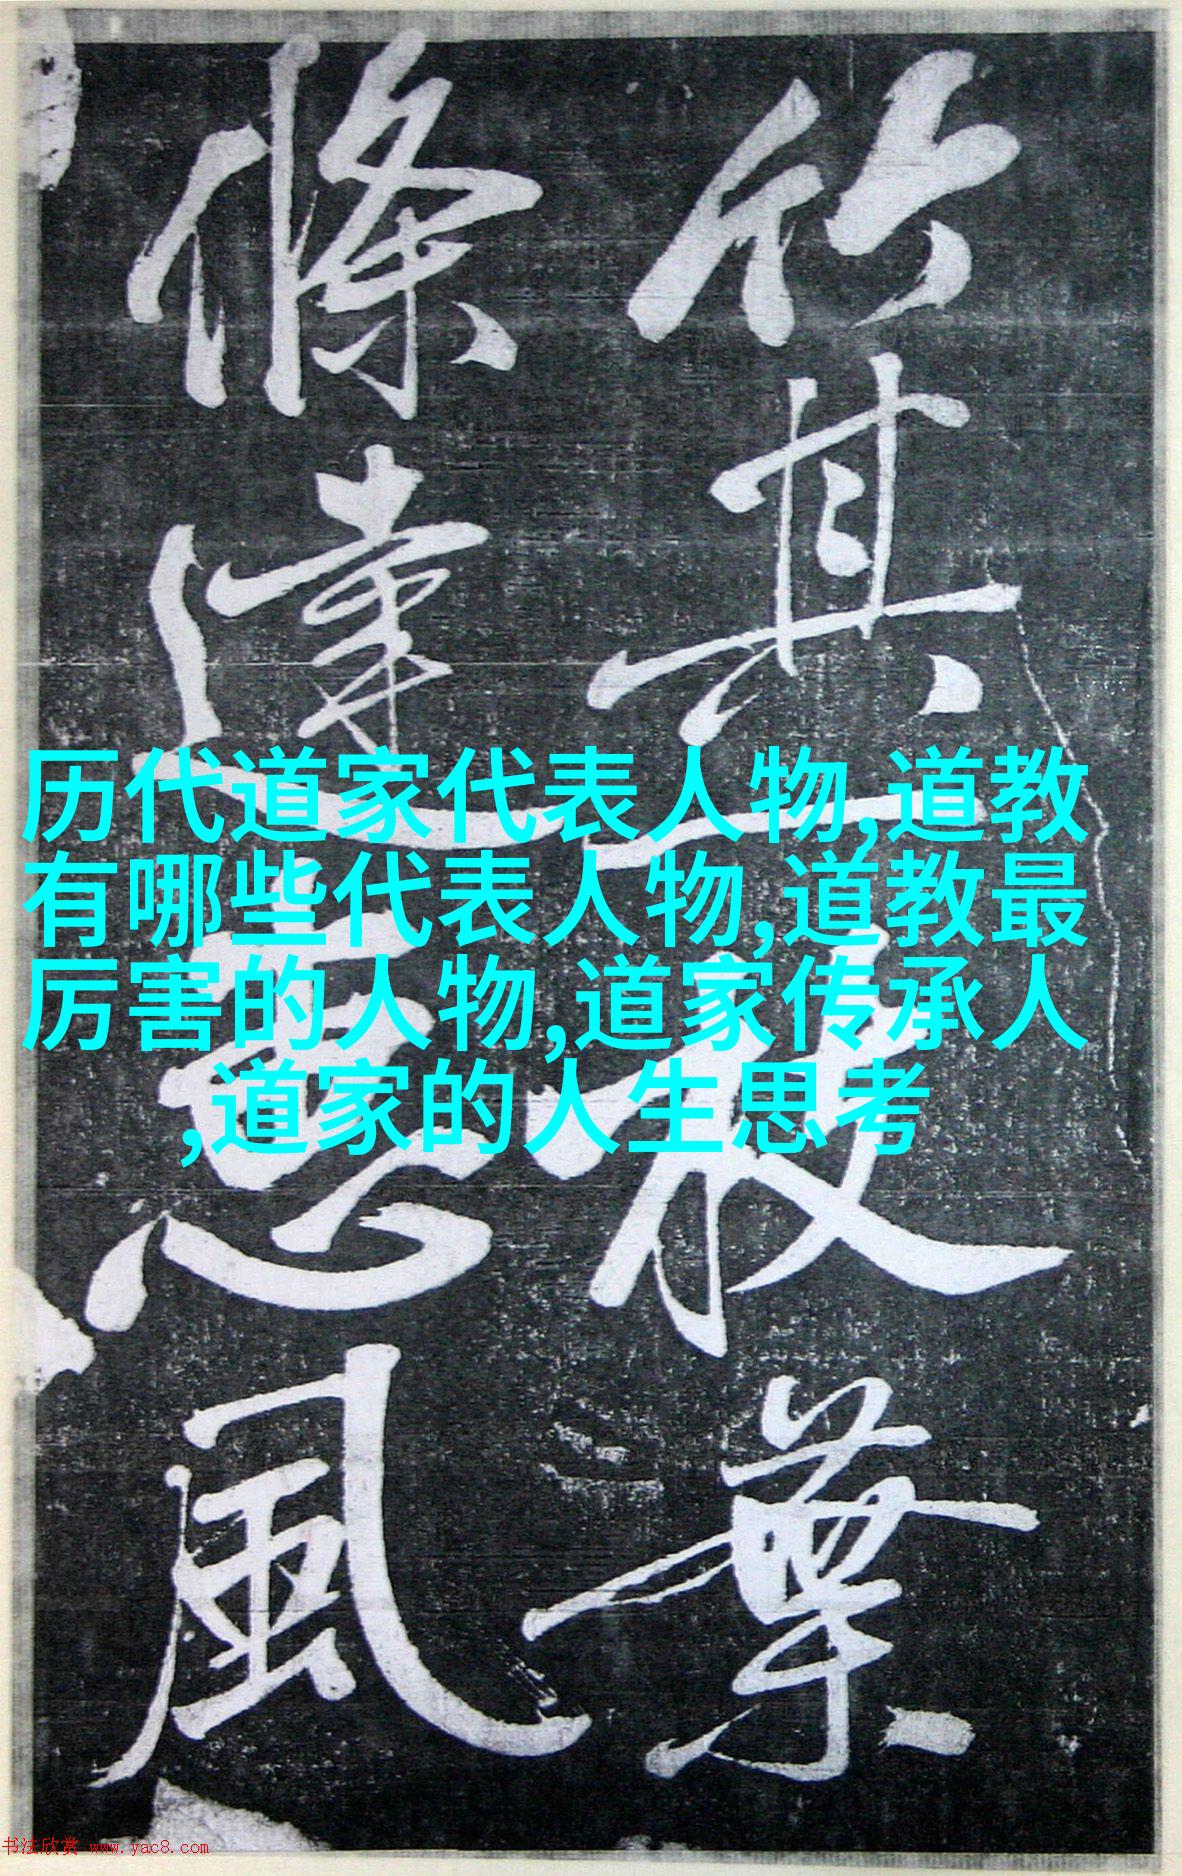 竹其枝葉
條達惠風
历代道家代表人物,道教
有哪些代表人物,道教最
厉害的人物,道家传承人
,道家的人生思考
书法欣赏 www.yac8.com